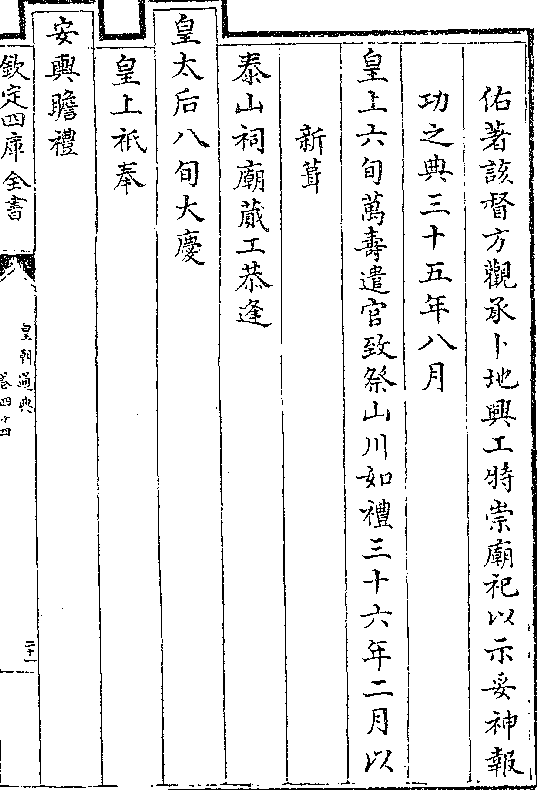 佑著該督方觀承卜地興工特崇廟祀以示妥神報
功之典三十五年八月
皇上六旬萬壽遣官致祭山川如禮三十六年二月以
新葺
泰山祠廟蕆工恭逢
皇太后八旬大慶
皇上祇奉
安輿瞻禮
欽定四庫全書
皇朝通典
卷四十四